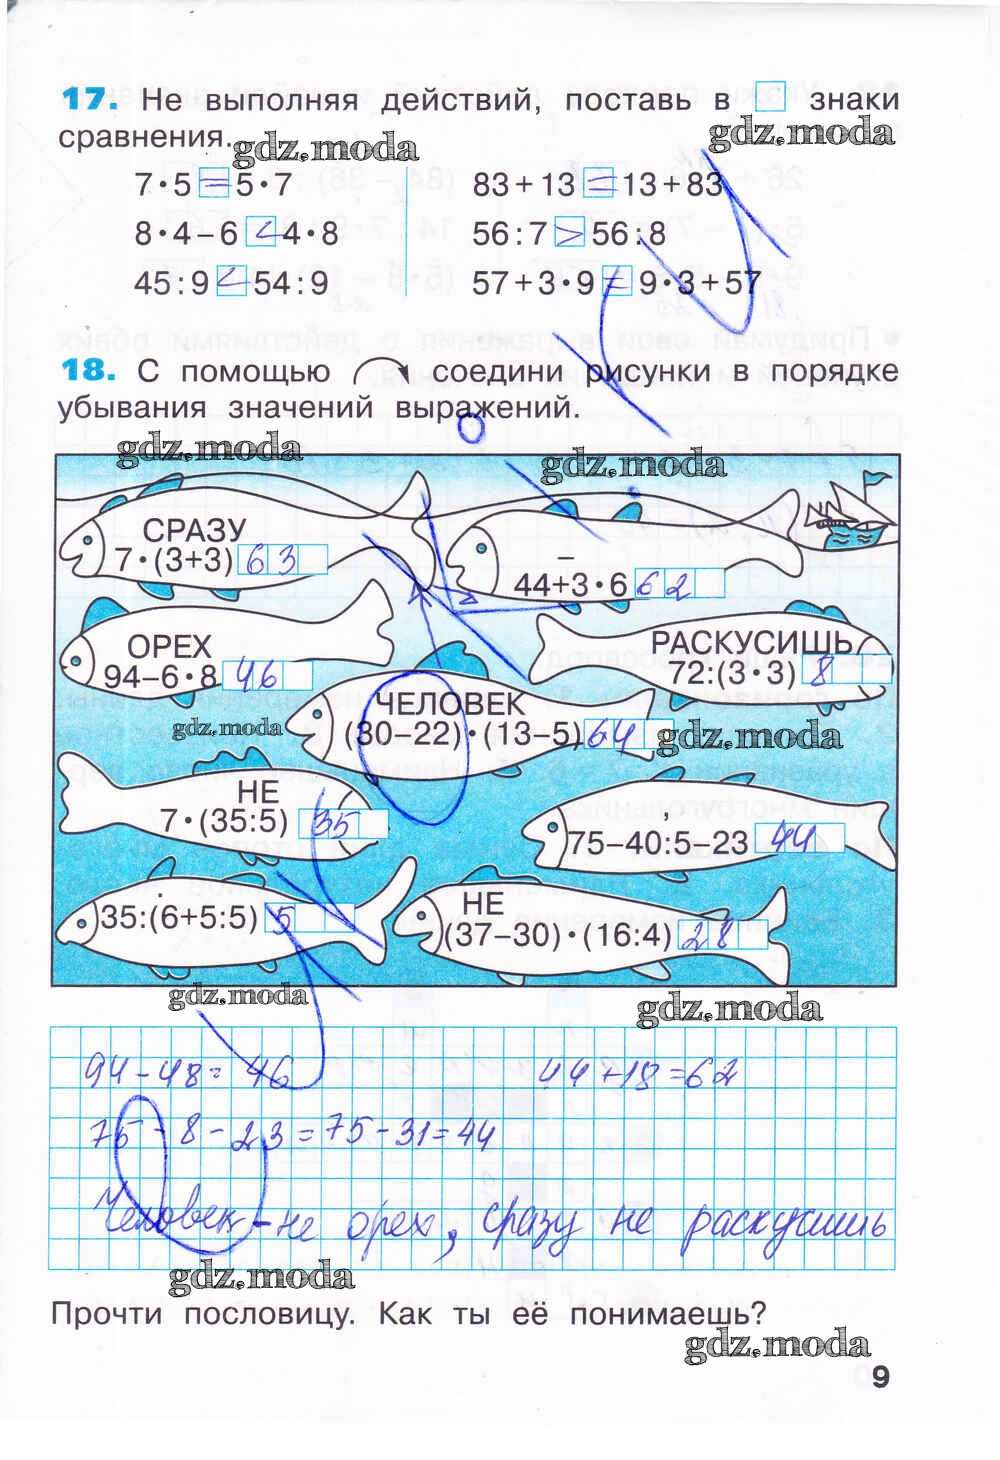 17. Не выполняя действий, поставь в знаки
сравнения.
gdz.moda
gdz.moda
7·5 = 5·7
83+13 = 13+83
8·4–6 < 4·8
56:7 > 56:8
45:9 < 54:9
57+3·9 = 9·3+57
18. С помощью соедини рисунки в порядке
убывания значений выражений.
gdz.moda
gdz.moda
СРАЗУ
7·(3+3) 63
–
44+3·6 62
ОРЕХ
94–6·8 46
РАСКУСИШЬ
72:(3·3) 8
ЧЕЛОВЕК
(30–22)·(13–5) 64
gdz.moda
gdz.moda
НЕ
7·(35:5) 35
,
75–40:5–23 44
.
35:(6+5:5) 5
НЕ
(37–30)·(16:4) 28
gdz.moda
gdz.moda
94-48= 46
44+18=62
75 - 8 - 23 = 75-31=44
Человек - не орех, сразу не раскусишь
gdz.moda
Прочти пословицу. Как ты её понимаешь?
gdz.moda
9